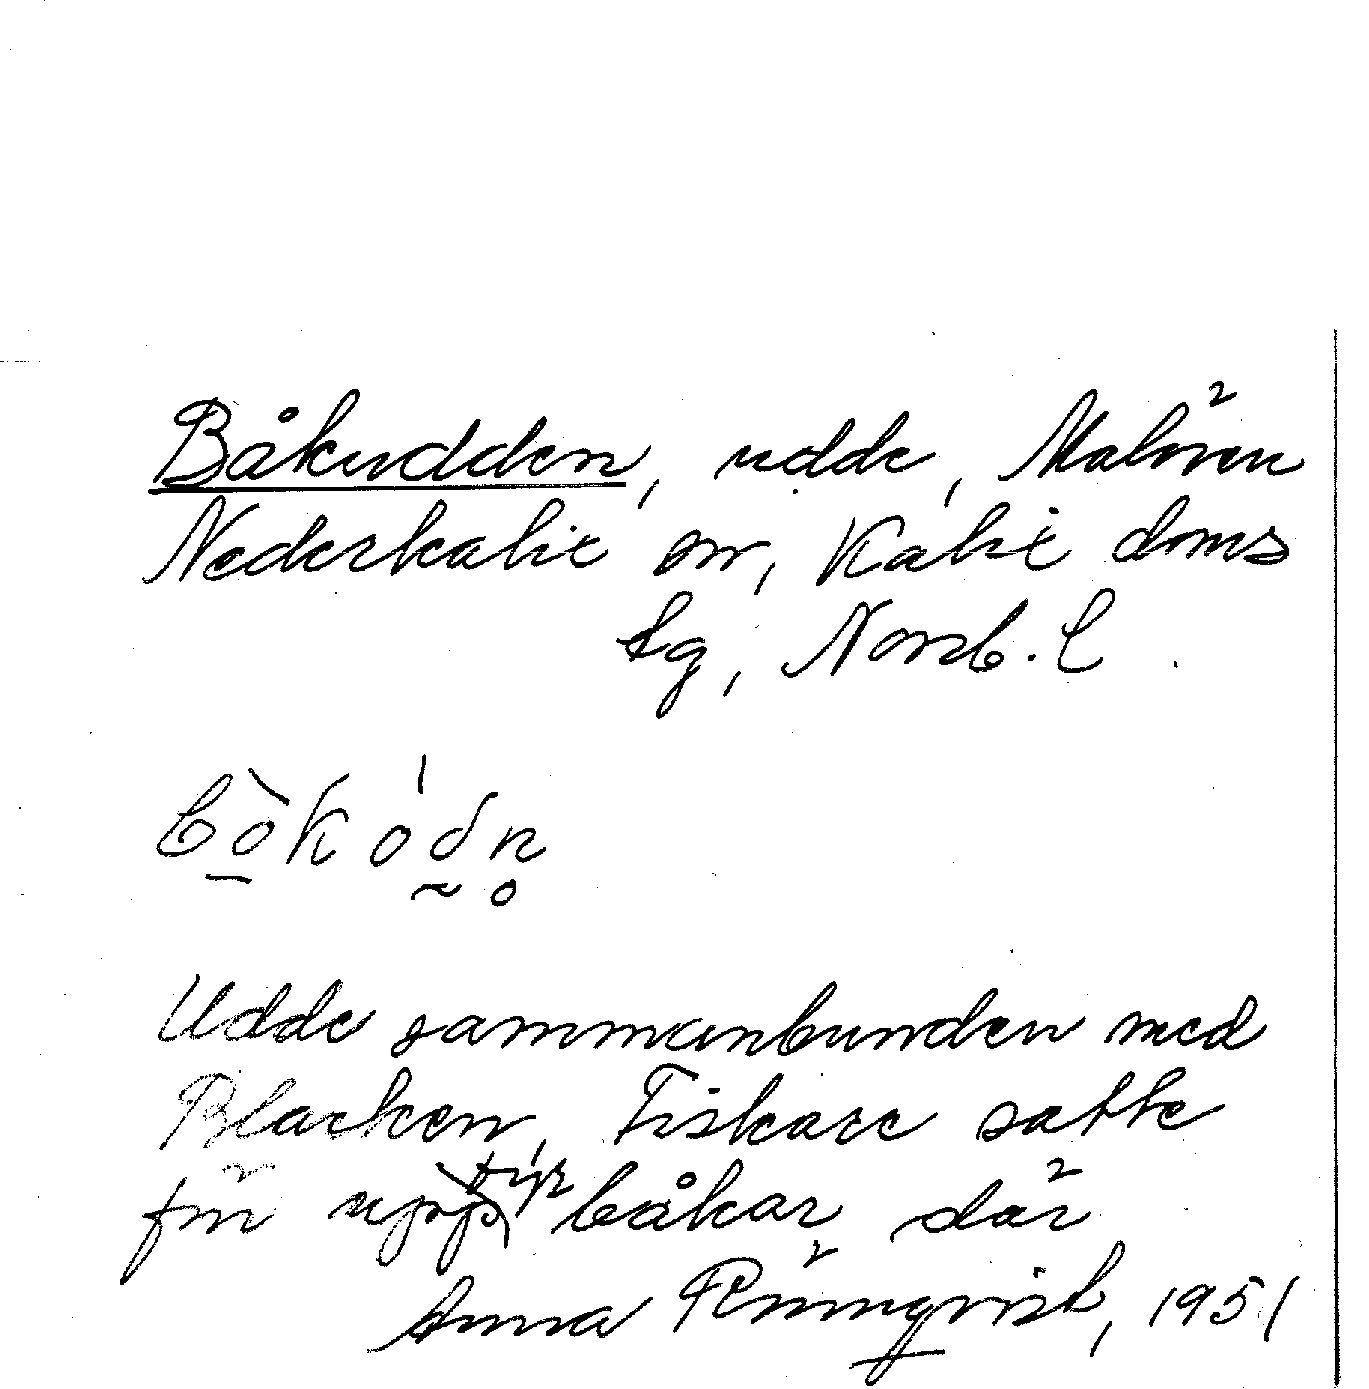 Båkudden, udde, Malören
Nederkalix sn, Kalix doms
tg, Norrb. l
bò̱kódn̥
Udde sammanbunden med
Blacken. Fiskare satte
för upp fyrbåkar där
Anna Rönnqvist, 1951